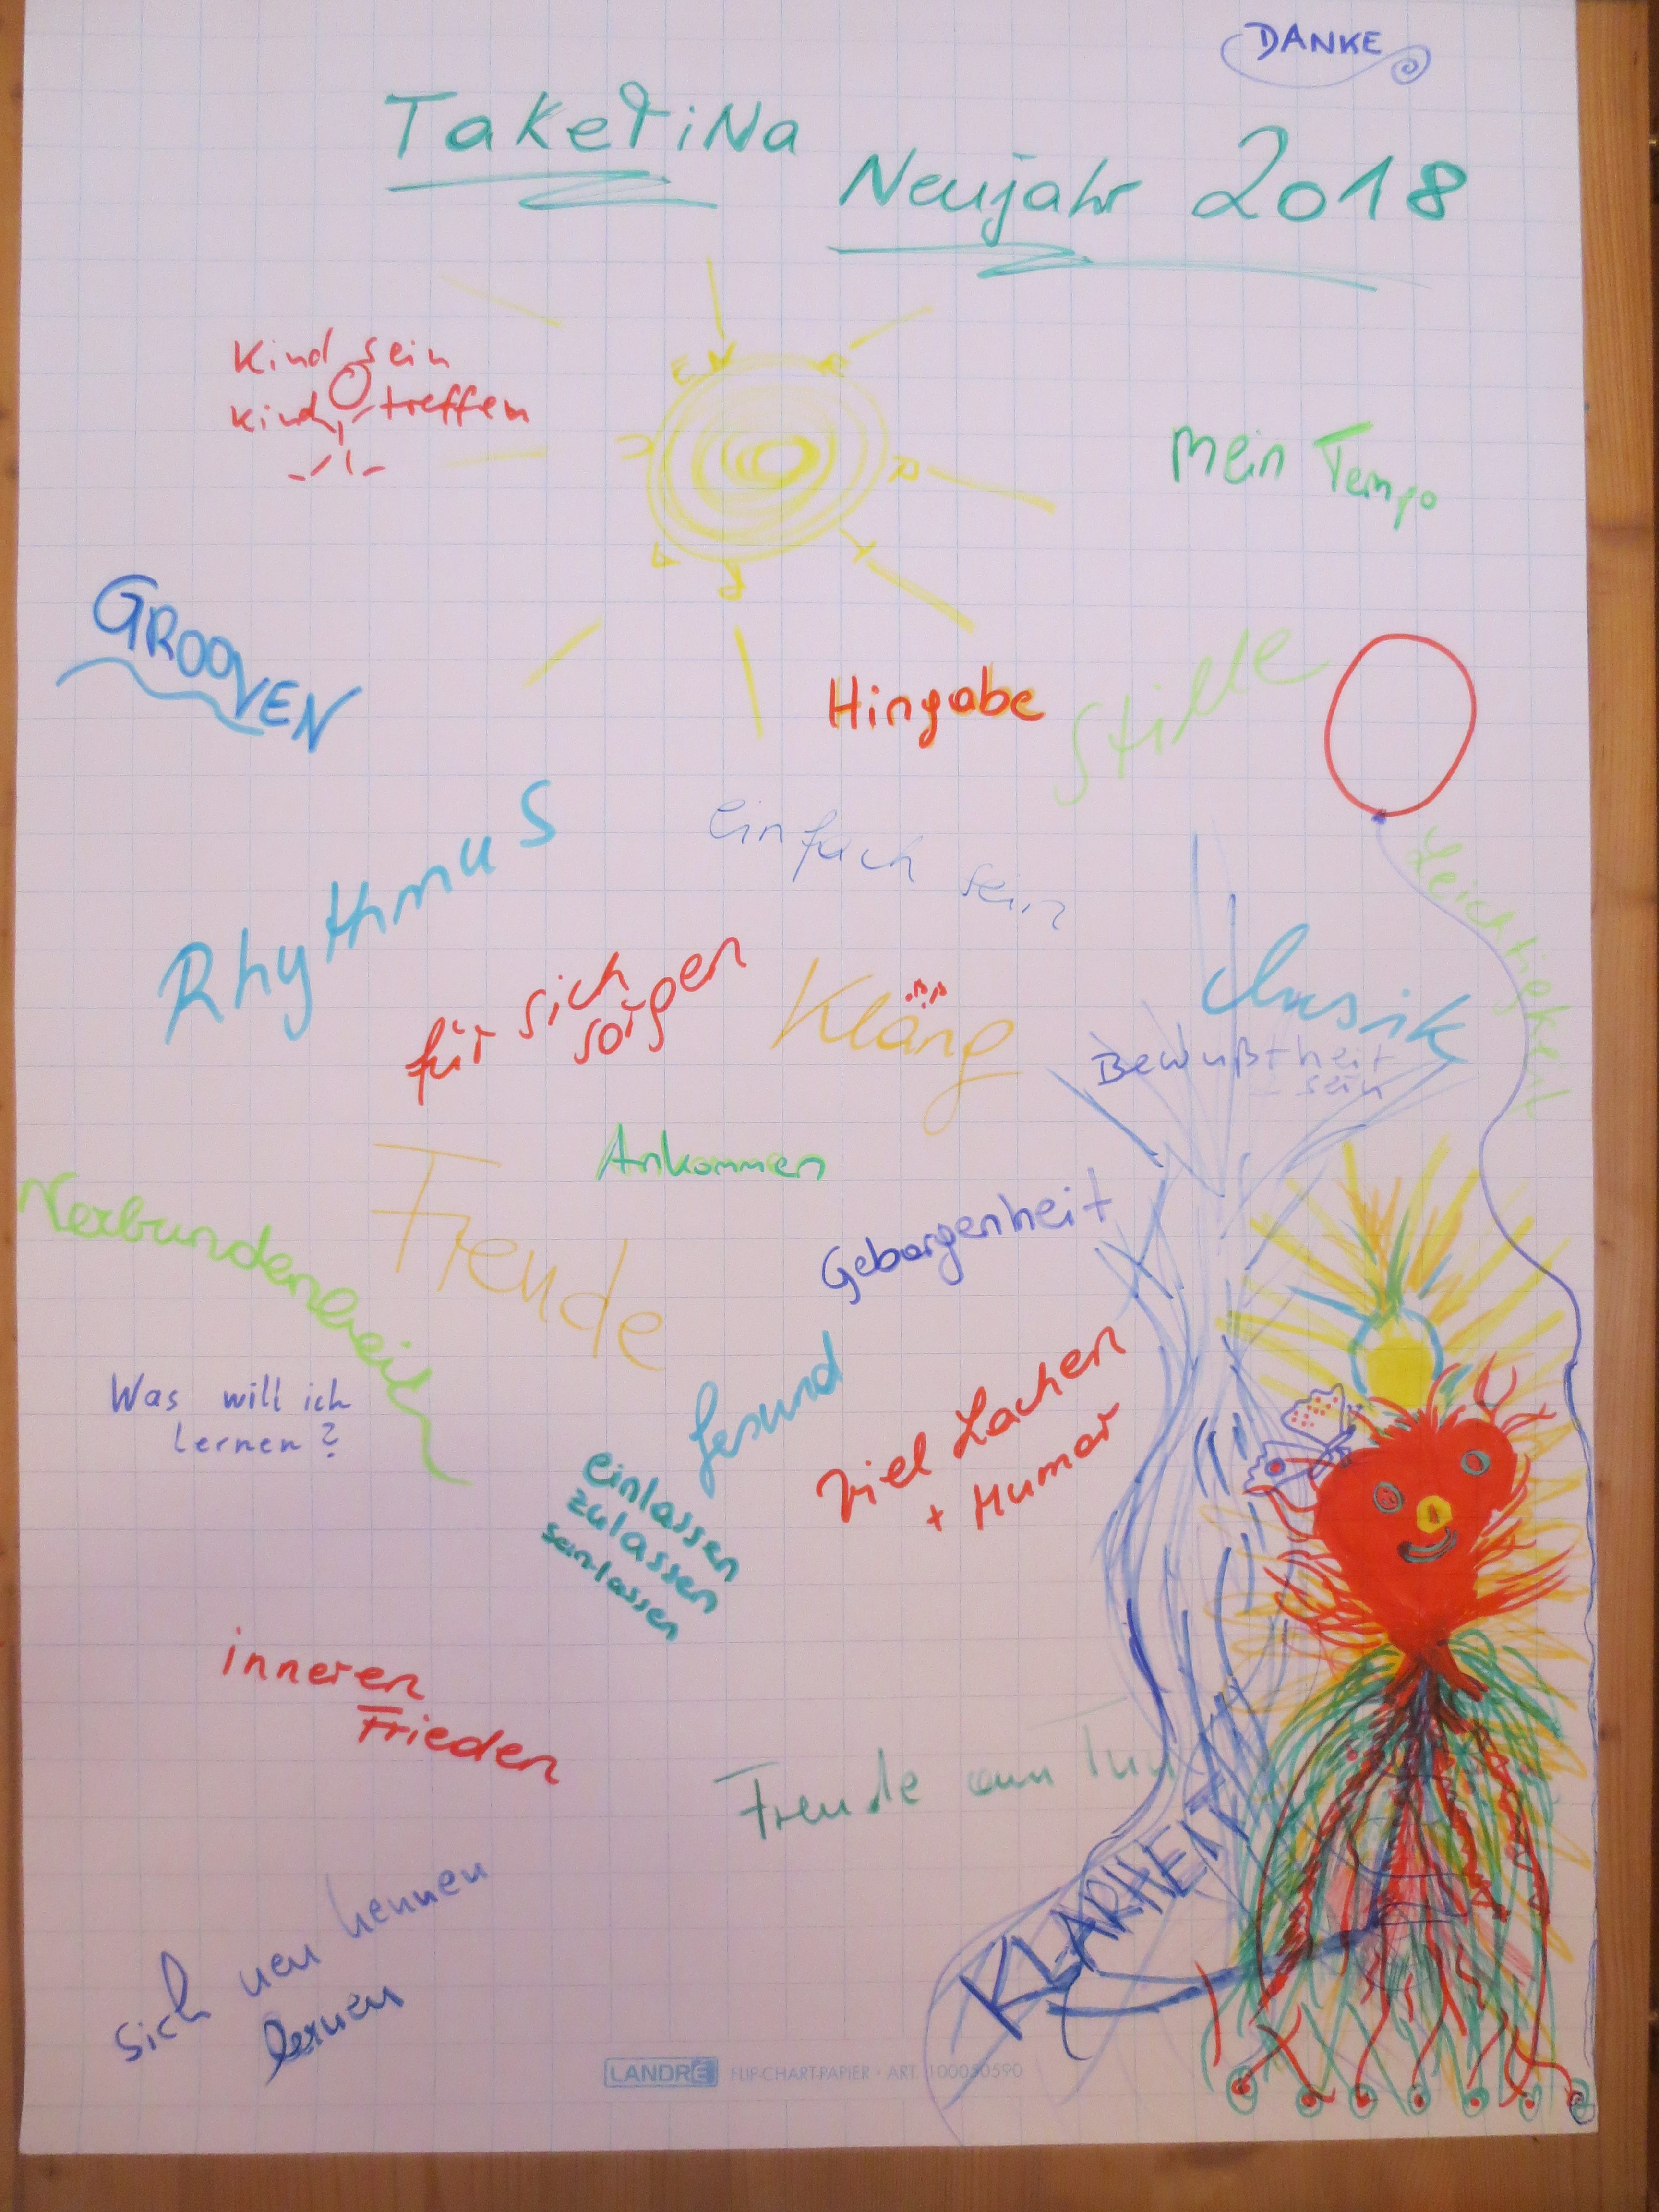 DANKE
TaKeTiNa
Neujahr 2018
Kind sein
Kind treffen
mein Tempo
GROOVEN
Hingabe
Stille
Rhythmus
einfach sein
Leichtigkeit
für sich
sorgen
Kläng
Musik
Bewußtheit
- sein
Ankommen
Verbundenheit
Freude
Geborgenheit
Was will ich
lernen?
gesund
viel Lachen
+ Humor
einlassen
zulassen
seinlassen
inneren
Frieden
Freude am Tun
KLARHEIT
sich neu kennen
lernen
LANDRÉ FLIP-CHART-PAPIER · ART. 100050590